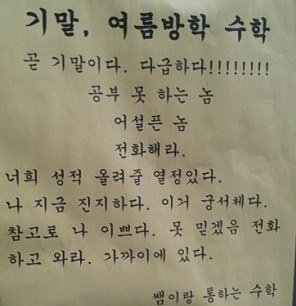 기말, 여름방학 수학
곧 기말이다. 다급하다!!!!!!!!
공부 못 하는 놈
어설픈 놈
전화해라.
너희 성적 올려줄 열정있다.
나 지금 진지하다. 이거 궁서체다.
참고로 나 이쁘다. 못 믿겠음 전화
하고 와라. 가까이에 있다.
쌤이랑 통하는 수학